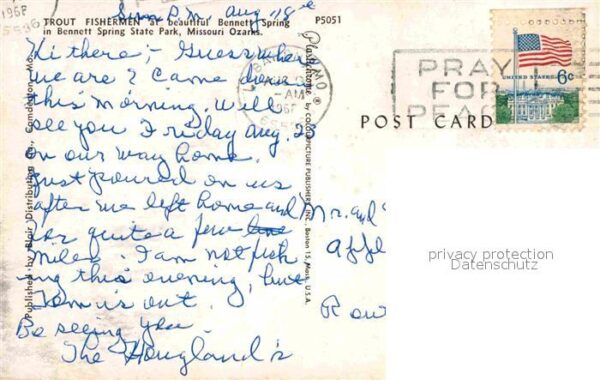 TROUT FISHERMEN at beautiful Bennett Spring
in Bennett Spring State Park, Missouri Ozarks.
P5051
Sun P.M. Aug 18
Hi there; - Guess where
we are? Came down
this morning. Will
see you Friday Aug. 23
on our way home.
Just poured on us
after we left home and
for quite a few
miles. I am not fish
ing this evening, but
Tom is out.
Be seeing you
The Hougland's
Published by Blair Distributing Co., Camdenton, Mo.
Plastichrome by COLOURPICTURE PUBLISHERS, INC., Boston 15, Mass. U.S.A.
MO.
AM
1968
PRAY
FOR
PEACE
UNITED STATES 6c
POST CARD
Mr. and
Apple
Rout
privacy protection
Datenschutz